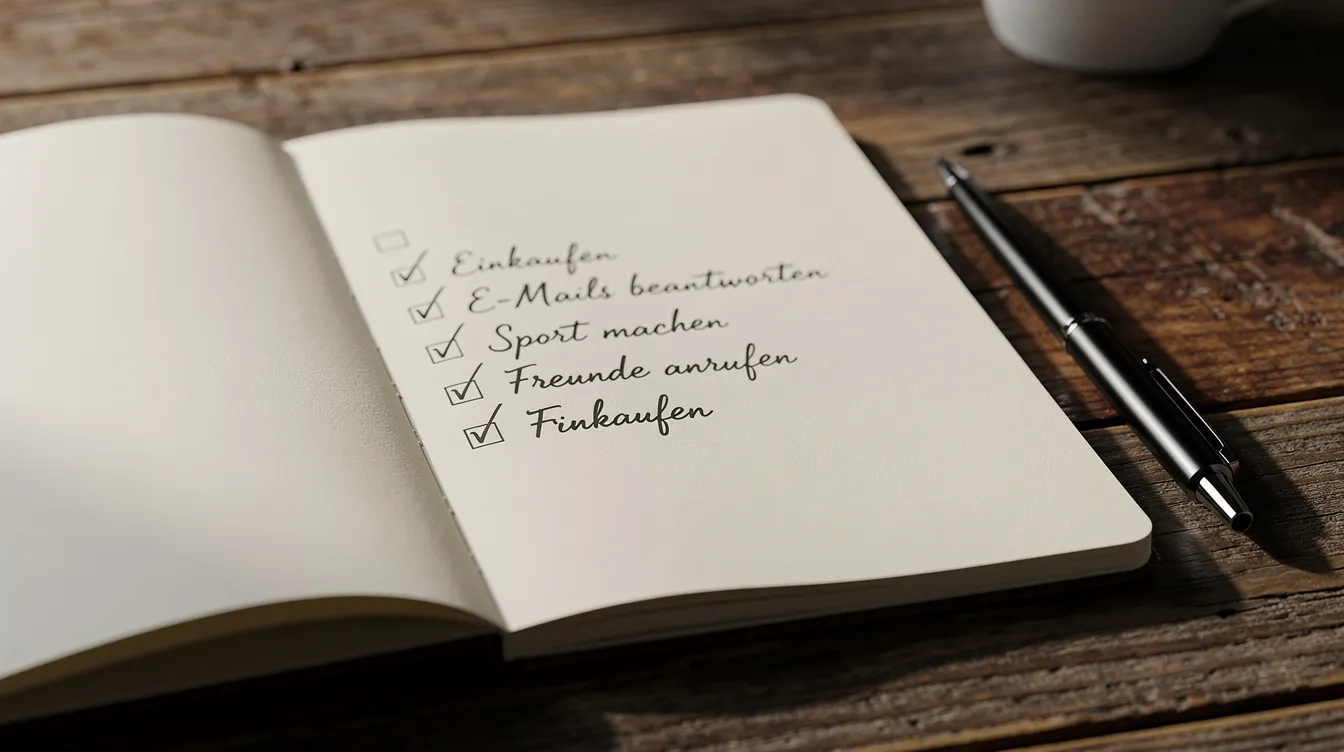 Einkaufen
E-Mails beantworten
Sport machen
Freunde anrufen
Finkaufen